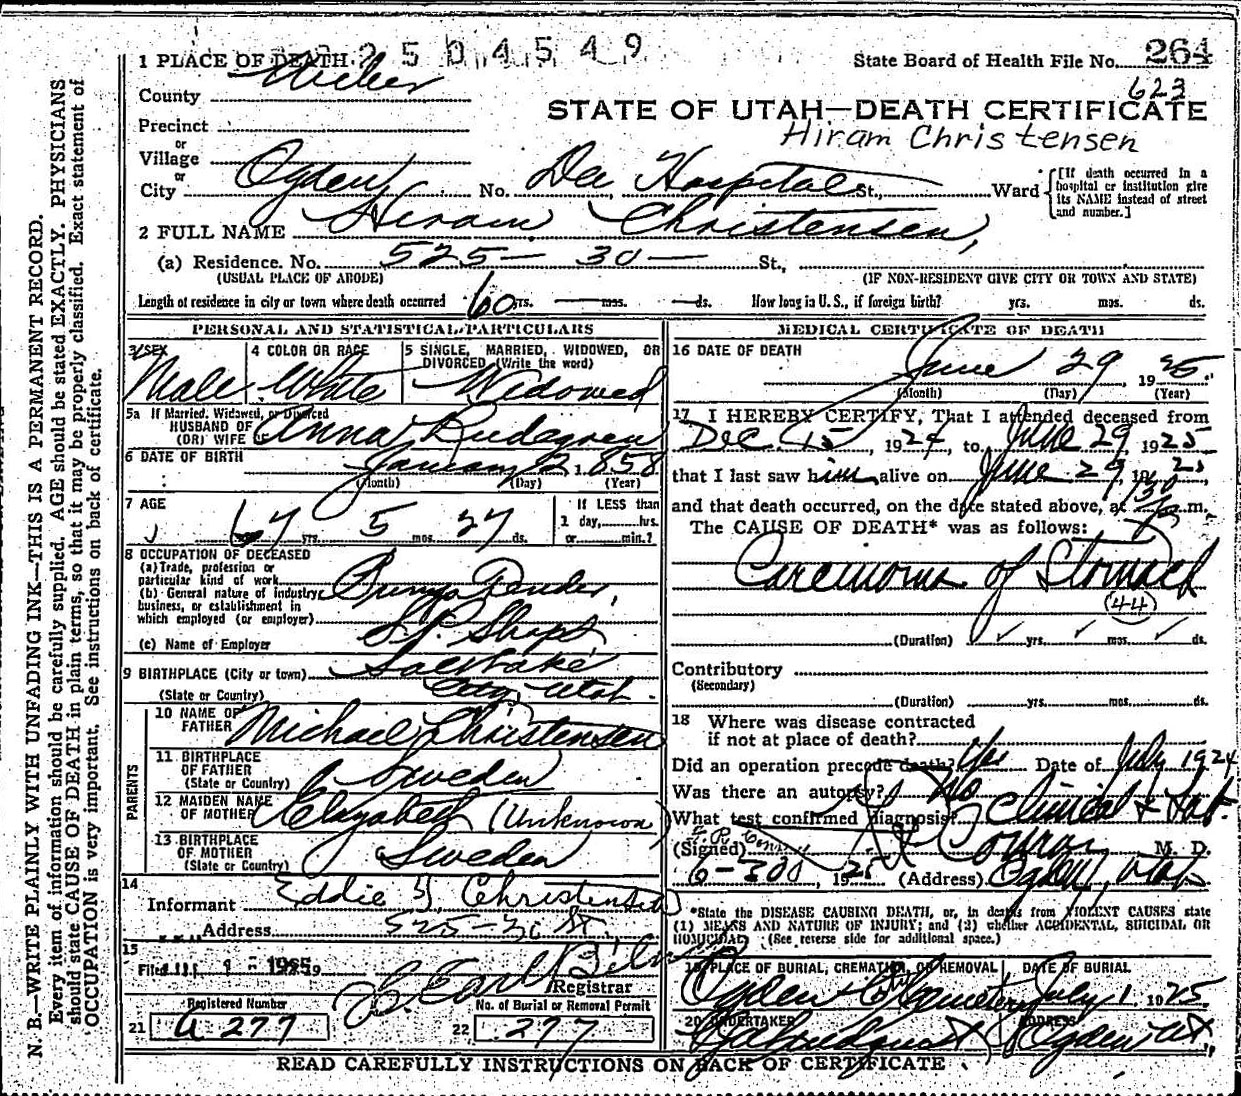 2504549
1 PLACE OF DEATH
State Board of Health File No. 264
623
County Weber
STATE OF UTAH—DEATH CERTIFICATE
Precinct
Hiram Christensen
or
Village
or
City Ogden No. Dee Hospital St., Ward
[If death occurred in a hospital or institution give its NAME instead of street and number.]
2 FULL NAME Hiram Christensen,
(a) Residence. No. 525 — 30 — St.,
(USUAL PLACE OF ABODE) (IF NON-RESIDENT GIVE CITY OR TOWN AND STATE)
Length of residence in city or town where death occurred 60 yrs. — mos. — ds. How long in U. S., if foreign birth? yrs. mos. ds.
N. B.—WRITE PLAINLY WITH UNFADING INK—THIS IS A PERMANENT RECORD.
Every item of information should be carefully supplied. AGE should be stated EXACTLY. PHYSICIANS
should state CAUSE OF DEATH in plain terms, so that it may be properly classified. Exact statement of
OCCUPATION is very important. See instructions on back of certificate.
PERSONAL AND STATISTICAL PARTICULARS
3 SEX Male
4 COLOR OR RACE White
5 SINGLE, MARRIED, WIDOWED, OR DIVORCED (Write the word) Widowed
5a If Married, Widowed, or Divorced
HUSBAND OF
(OR) WIFE OF Anna
6 DATE OF BIRTH January 2, 1858
(Month) (Day) (Year)
7 AGE 67 yrs. 5 mos. 27 ds.
If LESS than
1 day, hrs.
or min.?
8 OCCUPATION OF DECEASED
(a) Trade, profession or
particular kind of work
(b) General nature of industry,
business, or establishment in
which employed (or employer)
(c) Name of Employer S.P. Shops
9 BIRTHPLACE (City or town) Salt Lake
(State or Country) City, Utah.
PARENTS
10 NAME OF FATHER Michail Christensen
11 BIRTHPLACE OF FATHER (State or Country) Sweden
12 MAIDEN NAME OF MOTHER Elizabeth (Unknown)
13 BIRTHPLACE OF MOTHER (State or Country) Sweden
14
Informant Eddie Christensen
Address 525-30 St.
15
Filed 1 - 1925
Registrar
Registered Number No. of Burial or Removal Permit
21 a 277 22 277
MEDICAL CERTIFICATE OF DEATH
16 DATE OF DEATH
June 29, 1925.
(Month) (Day) (Year)
17 I HEREBY CERTIFY, That I attended deceased from
Dec. 15, 1924, to June 29, 1925
that I last saw him alive on June 29, 1925,
and that death occurred, on the date stated above, at m.
The CAUSE OF DEATH* was as follows:
Carcinoma of Stomach
(44)
(Duration) yrs. mos. ds.
Contributory
(Secondary)
(Duration) yrs. mos. ds.
18 Where was disease contracted
if not at place of death?
Did an operation precede death? Yes Date of July 1924
Was there an autopsy? No
What test confirmed diagnosis? Clinical & Lab.
(Signed) M. D.
6-30, 1925 (Address) Ogden, Utah
*State the DISEASE CAUSING DEATH, or, in deaths from VIOLENT CAUSES state
(1) MEANS AND NATURE OF INJURY; and (2) whether ACCIDENTAL, SUICIDAL OR
HOMICIDAL. (See reverse side for additional space.)
19 PLACE OF BURIAL, CREMATION, OR REMOVAL DATE OF BURIAL
Ogden City Cemetery July 1, 1925.
20 UNDERTAKER ADDRESS
Ogden, Ut.,
READ CAREFULLY INSTRUCTIONS ON BACK OF CERTIFICATE